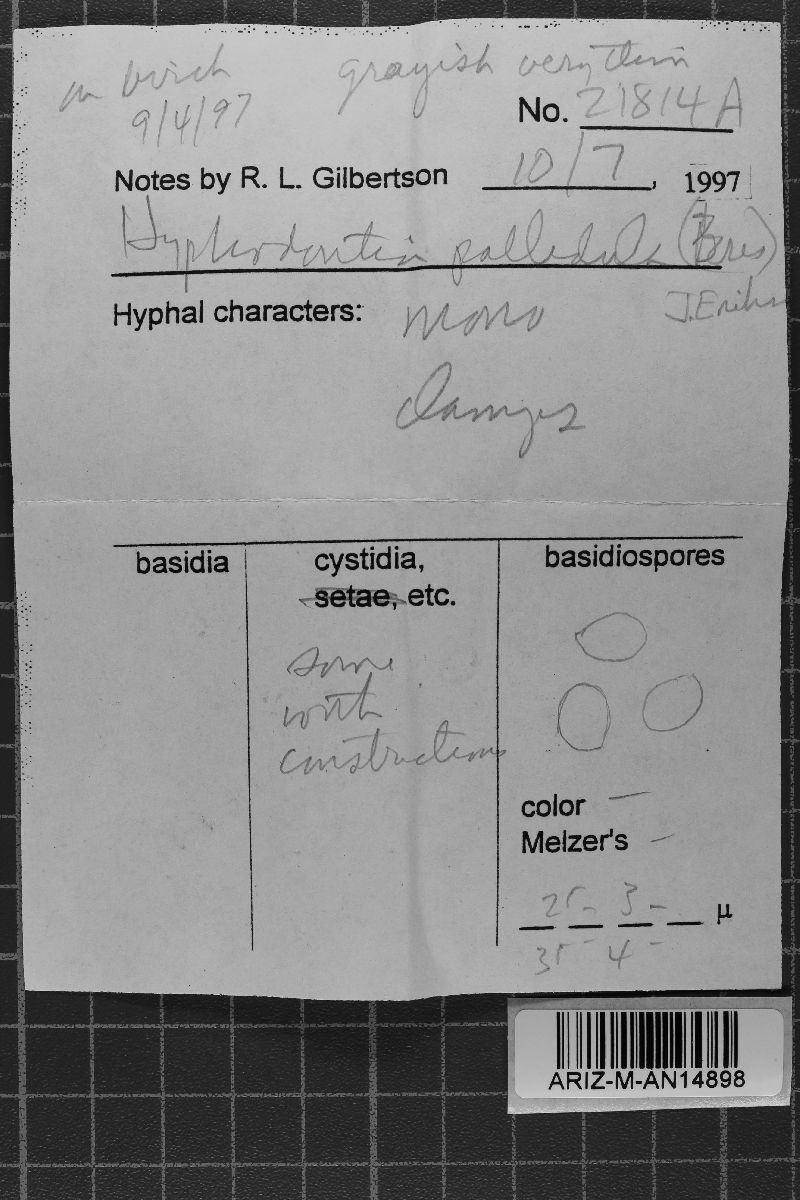 on birch grayish very thin
9/4/97
No. 21814A
Notes by R. L. Gilbertson 10/7, 1997
Hyphodontia pallidula (Bres)
J. Erikss
Hyphal characters: mono
clamps
basidia
cystidia,
setae, etc.
some
with
constrictions
basidiospores
color —
Melzer's —
25- 3- μ
35- 4-
ARIZ-M-AN14898